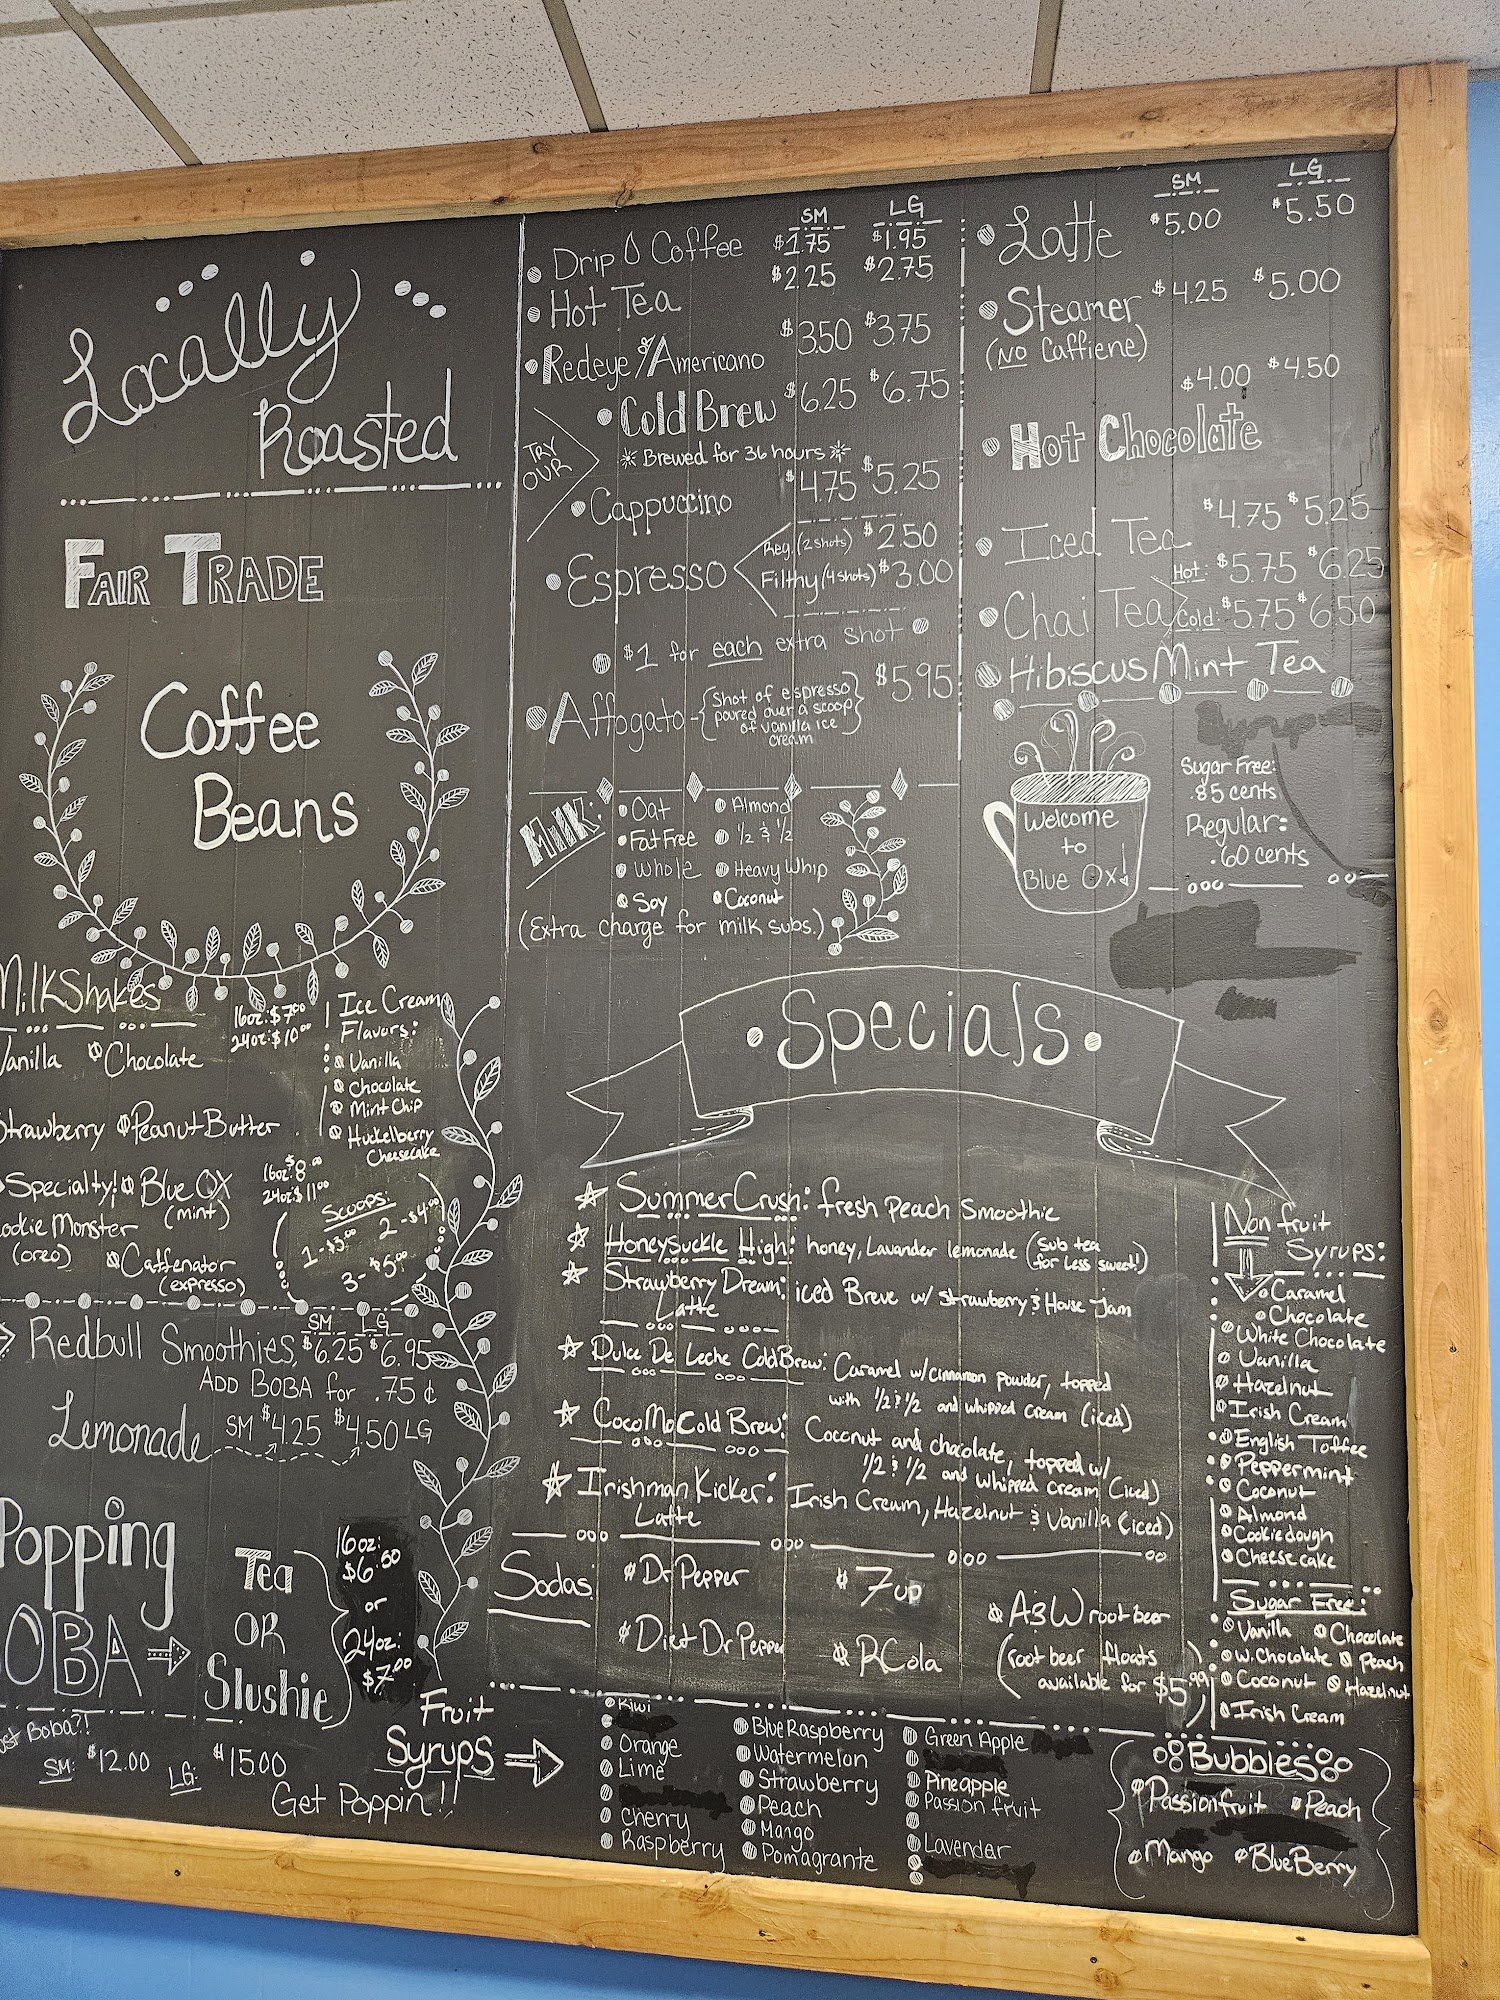 Locally
Roasted
FAIR TRADE
Coffee
Beans
MilkShakes
16oz: $7.00
24oz: $10.00
Vanilla Chocolate
Strawberry Peanut Butter
Specialty! Blue OX
(mint)
16oz: $8.00
24oz: $11.00
Cookie Monster
(oreo)
Caffenator
(expresso)
Ice Cream
Flavors:
Vanilla
Chocolate
Mint Chip
Huckelberry
Cheesecake
Scoops:
1-$3.00 2-$4.00
3-$5.00
SM LG
Redbull Smoothies $6.25 $6.95
ADD BOBA for .75 ¢
Lemonade SM $4.25 $4.50 LG
Popping
BOBA
Tea
OR
Slushie
16oz:
$6.50
or
24oz:
$7.00
Just Boba?!
SM: $12.00 LG: $15.00
Get Poppin!!
SM LG
Drip Coffee $1.75 $1.95
Hot Tea $2.25 $2.75
Redeye & Americano $3.50 $3.75
TRY
OUR
Cold Brew $6.25 $6.75
Brewed for 36 hours
Cappuccino $4.75 $5.25
Espresso
Reg. (2 shots) $2.50
Filthy (4 shots) $3.00
$1 for each extra shot
Affogato - {Shot of espresso
poured over a scoop
of vanilla ice
cream} $5.95
Milk:
Oat Almond
Fat Free 1/2 & 1/2
Whole Heavy Whip
Soy Coconut
(Extra charge for milk subs.)
SM LG
Latte $5.00 $5.50
Steamer $4.25 $5.00
(No Caffiene)
Hot Chocolate $4.00 $4.50
Iced Tea $4.75 $5.25
Chai Tea
Hot: $5.75 $6.25
Cold: $5.75 $6.50
Hibiscus Mint Tea
Welcome
to
Blue Ox!
Sugar Free:
.85 cents
Regular:
.60 cents
Specials
Summer Crush: fresh Peach Smoothie
Honeysuckle High: honey, Lavander lemonade (sub tea
for less sweet!)
Strawberry Dream: iced Breve w/ strawberry & House Jam
Latte
Dulce De Leche Cold Brew: Caramel w/cinnamon powder, topped
with 1/2 & 1/2 and whipped cream (iced)
Coco Mo Cold Brew: Coconut and chocolate, topped w/
1/2 & 1/2 and whipped cream (iced)
Irishman Kicker: Irish Cream, Hazelnut & Vanilla (iced)
Latte
Non fruit
Syrups:
Caramel
Chocolate
White Chocolate
Vanilla
Hazelnut
Irish Cream
English Toffee
Peppermint
Coconut
Almond
Cookiedough
Cheesecake
Sugar Free:
Vanilla Chocolate
W. Chocolate Peach
Coconut Hazelnut
Irish Cream
Sodas:
Dr Pepper 7up
Diet Dr Pepper RC Cola
A&W rootbeer
(root beer floats
available for $5.99)
Fruit
Syrups
Kiwi
Orange
Lime
Cherry
Raspberry
Blue Raspberry
Watermelon
Strawberry
Peach
Mango
Pomagrante
Green Apple
Pineapple
Passion fruit
Lavender
Bubbles
Passionfruit Peach
Mango BlueBerry